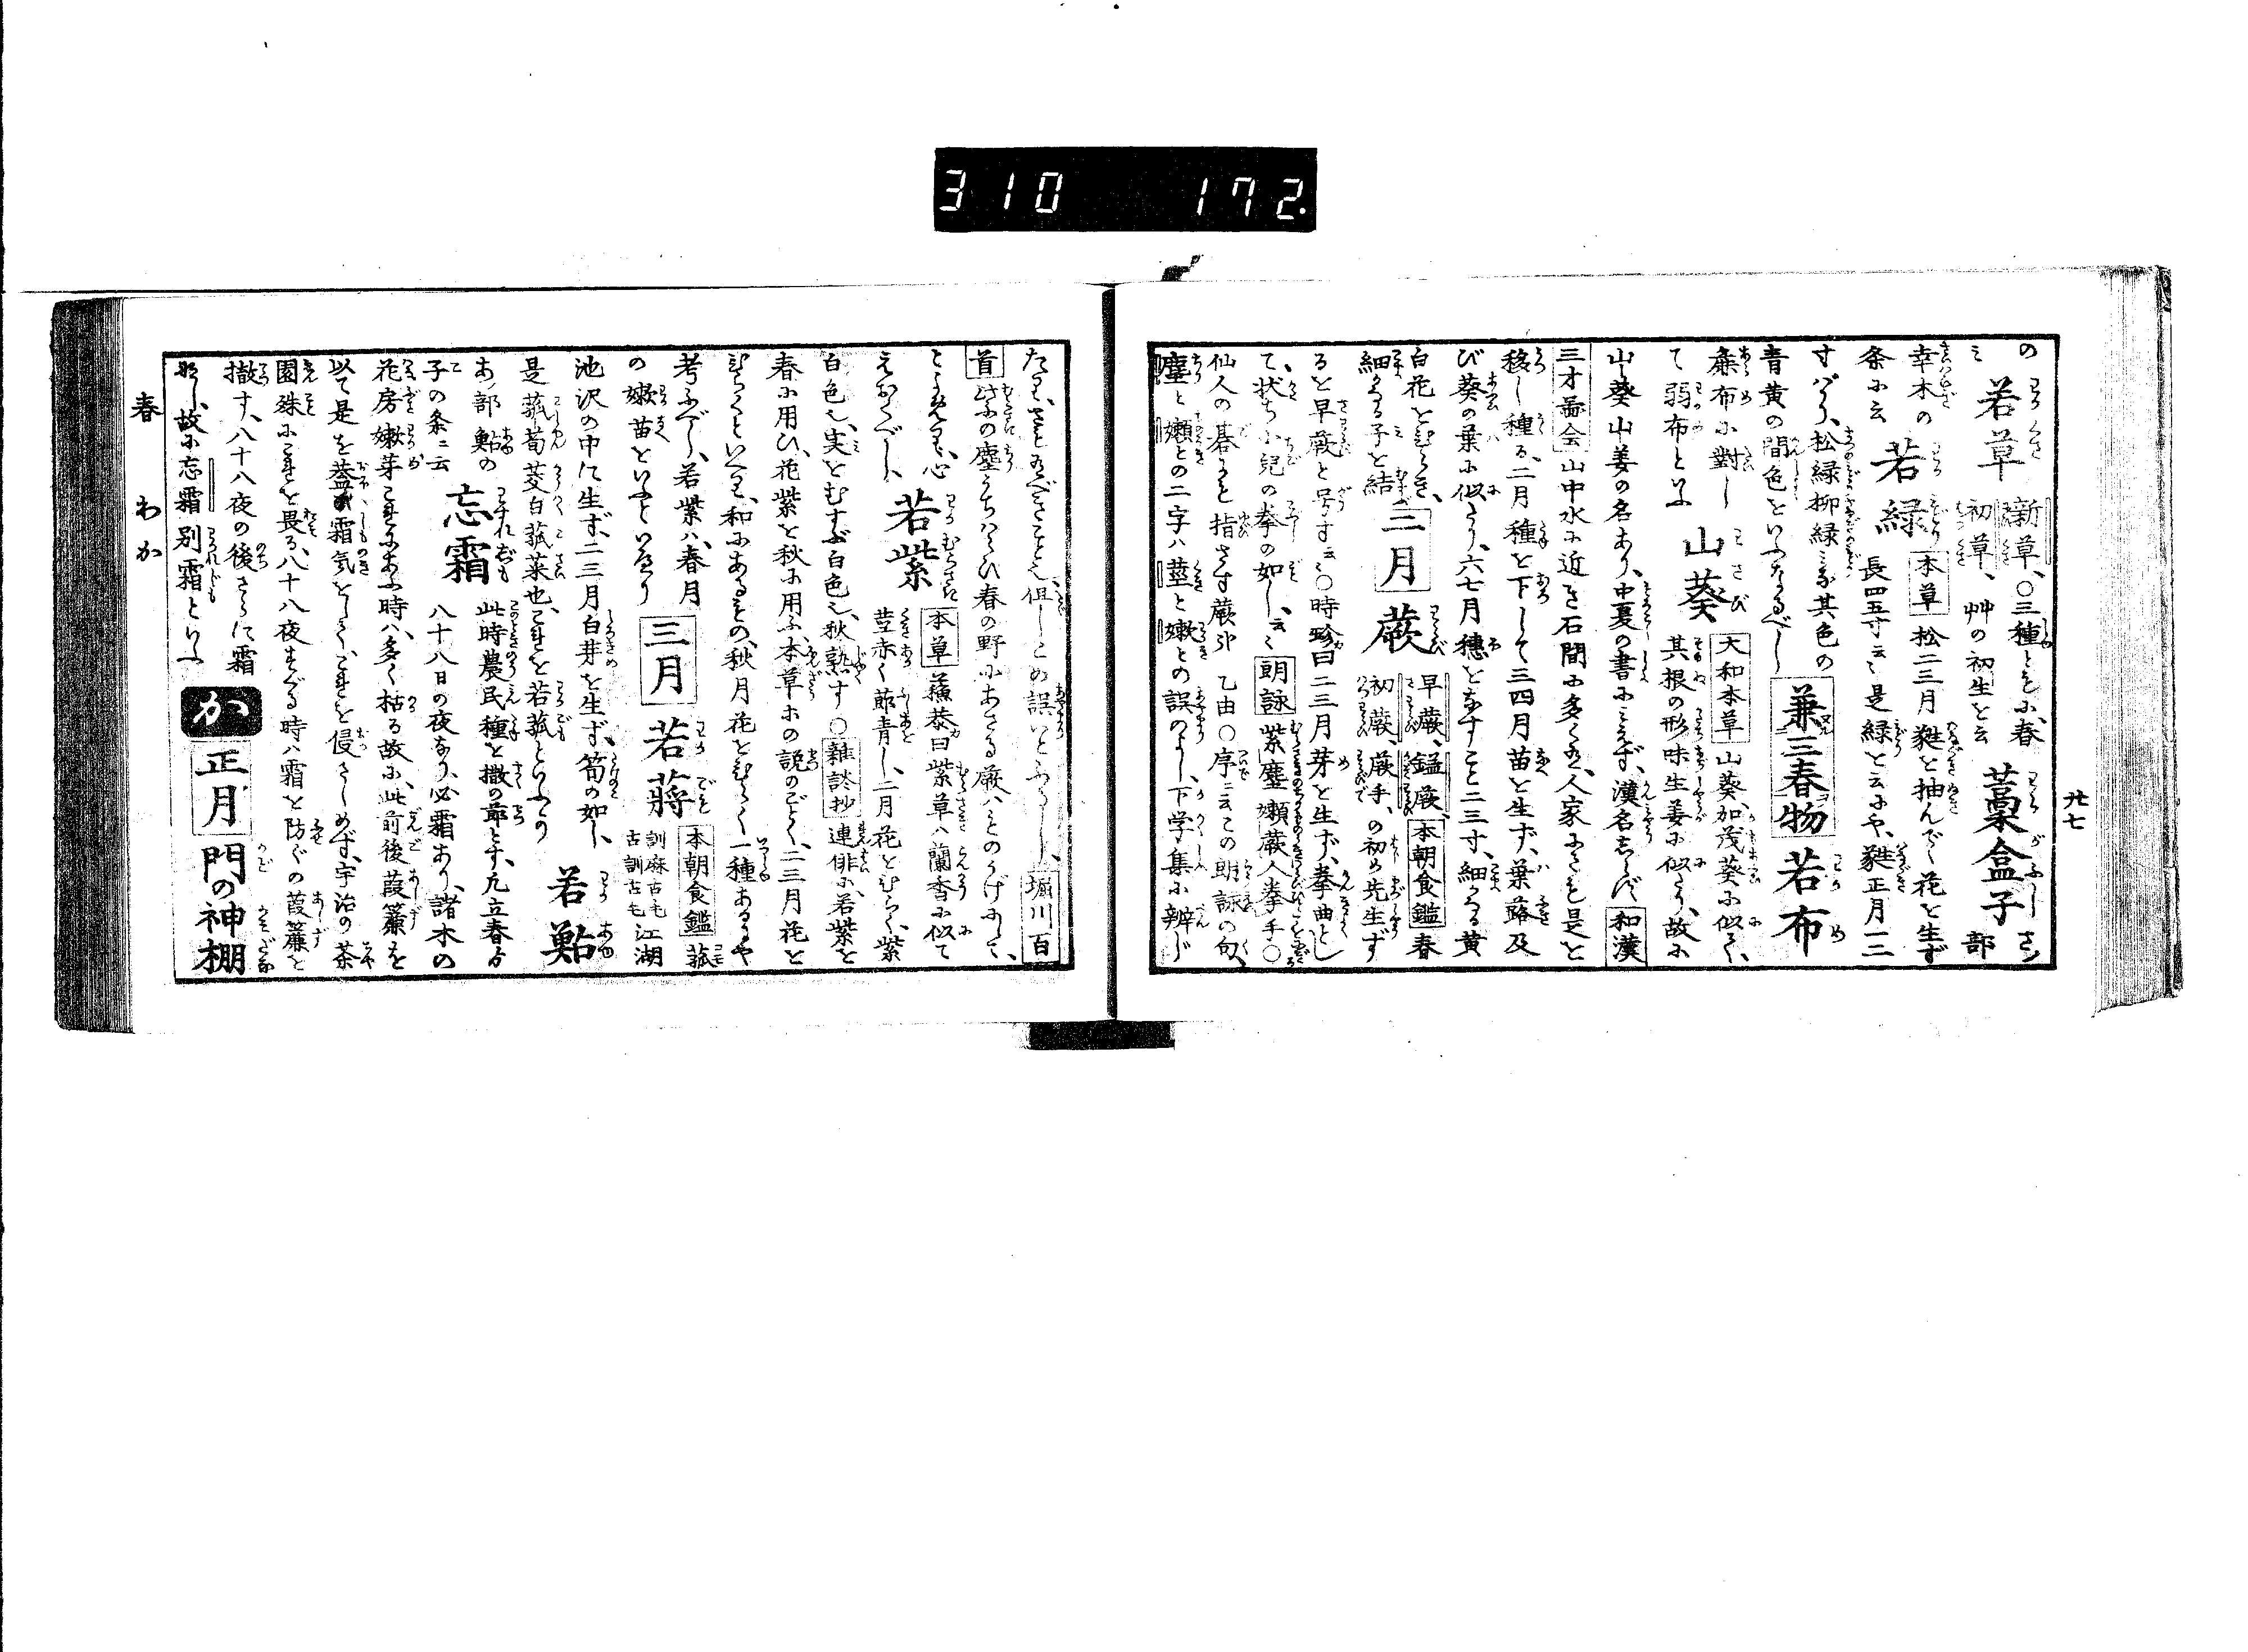 310 172.
廿七
の 若草 新草、初草、○三種ともに、春
ミ 艸の初生を云 藁盒子 さノ部
幸木の 若緑 本草 松二三月蕤を抽んで花を生ず
条に云 長四五寸云々 是緑と云にや、蕤正月二三
寸ばかり、松緑柳緑ミな其色の
青黄の間色をいふなるべし 兼三春物 若布
麁布に對し 大和本草 山葵、加茂葵に似て、
て弱布といふ 山葵 其根の形味生姜に似たり、故に
山葵山姜の名あり、中夏の書にミえず、漢名しらず 和漢
三才圖会 山中水に近き石間に多く、人家にも是を
移し種る、二月種を下して三四月苗を生ず、葉蕗及
び葵の葉に似たり、六七月穂をなすこと二三寸、細なる黄
白花をひらき、 早蕨、鎰蕨、 本朝食鑑 春
細なる子を結 三月 蕨 初蕨、蕨手、の初め先生ず
ると早蕨と号す云々○時珍曰二三月芽を生ず、拳曲し
て、状ち小兒の拳の如し、云々 朗詠 紫塵嬾蕨人拳手○
仙人の碁なと指さす蕨 乙由○序ニ云この朗詠の句、
塵と嬾との二字ハ 蓝と嫩との誤のよし、下学集に辨じ
たり、さもあるべきことと、但しとめ誤いとふるし、堀川百
首 の塵うちはらひ春の野にあさる蕨ハものうげにして、
とうたへり、心 本草 蘓恭曰紫草ハ蘭香に似て
えおくべし、 若紫 茎赤く節青し、二月花をひらく、紫
白色、実をむすぶ白色、秋熟す ○雜談抄 連俳に、若紫を
春に用ひ、花紫を秋に用ふ、本草の説のごとく、二三月花を
ひらくといへり、和にあるもの、秋月花をひらく、一種あるにや
考ふべし、若紫ハ、春月 本朝食鑑 菰
の嫩苗といふといへり 三月 若蒋 訓麻古毛 古訓古毛 江湖
池沢の中に生ず、二三月白芽を生ず、筍の如し、
是菰筍茭白菰菜也、これを若菰といふもの 若鮎
あノ部鮎の 此時農民種を撒の節とす、凡立春より
子の条ニ云 忘霜 八十八日の夜あり、必霜あり、諸木の
花房嫩芽これにあふ時ハ、多く枯る故に、此前後葭簾を
以て是を蓋ひ霜気をして、これを侵さしめず、宇治の茶
園殊にこれを畏る、八十八夜すぐる時ハ霜を防ぐの葭簾を
撤す、八十八夜の後さらに霜
なし、故に忘霜別霜といふ か 正月 門の神棚
春 わか